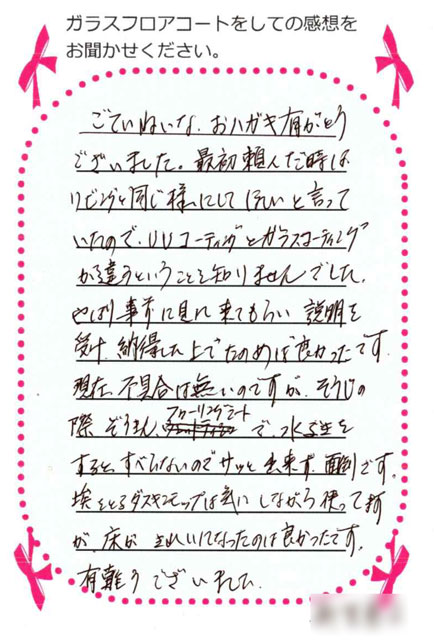 ガラスフロアコートをしての感想を
お聞かせください。
ごていねいな、おハガキ有がとう
ございました。最初頼んだ時は
リビングと同じ様にして ほしいと言って
いたので、UVコーティングとガラスコーティング
が違うということを知りませんでした。
やはり事前に見に来てもらい 説明を
受け、納得した上でたのめば良かったです。
現在、不具合は無いのですが、そうじの
際、ぞうきん、フローリングシート で、水ぶきを
すると、すべらないのでサッと出来ず、面倒です。
埃をとるダスキンモップは気に しながら 使ってます
が、床が きれいになったのは良かったです。
有難う ございました。